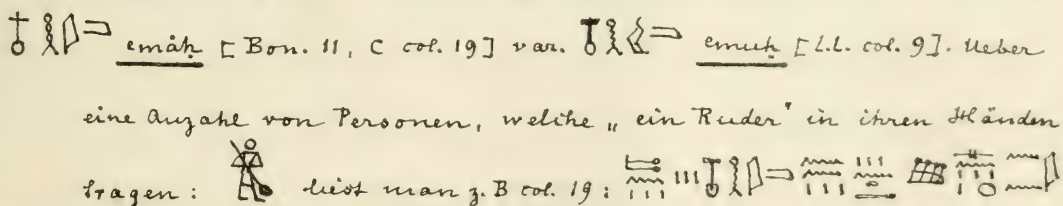 emȧḥ [Bon. 11, C col. 19] var. emuḥ [L.L. col. 9]. Ueber
eine Anzahl von Personen, welche „ein Ruder" in ihren Händen
tragen: liest man z.B col. 19: